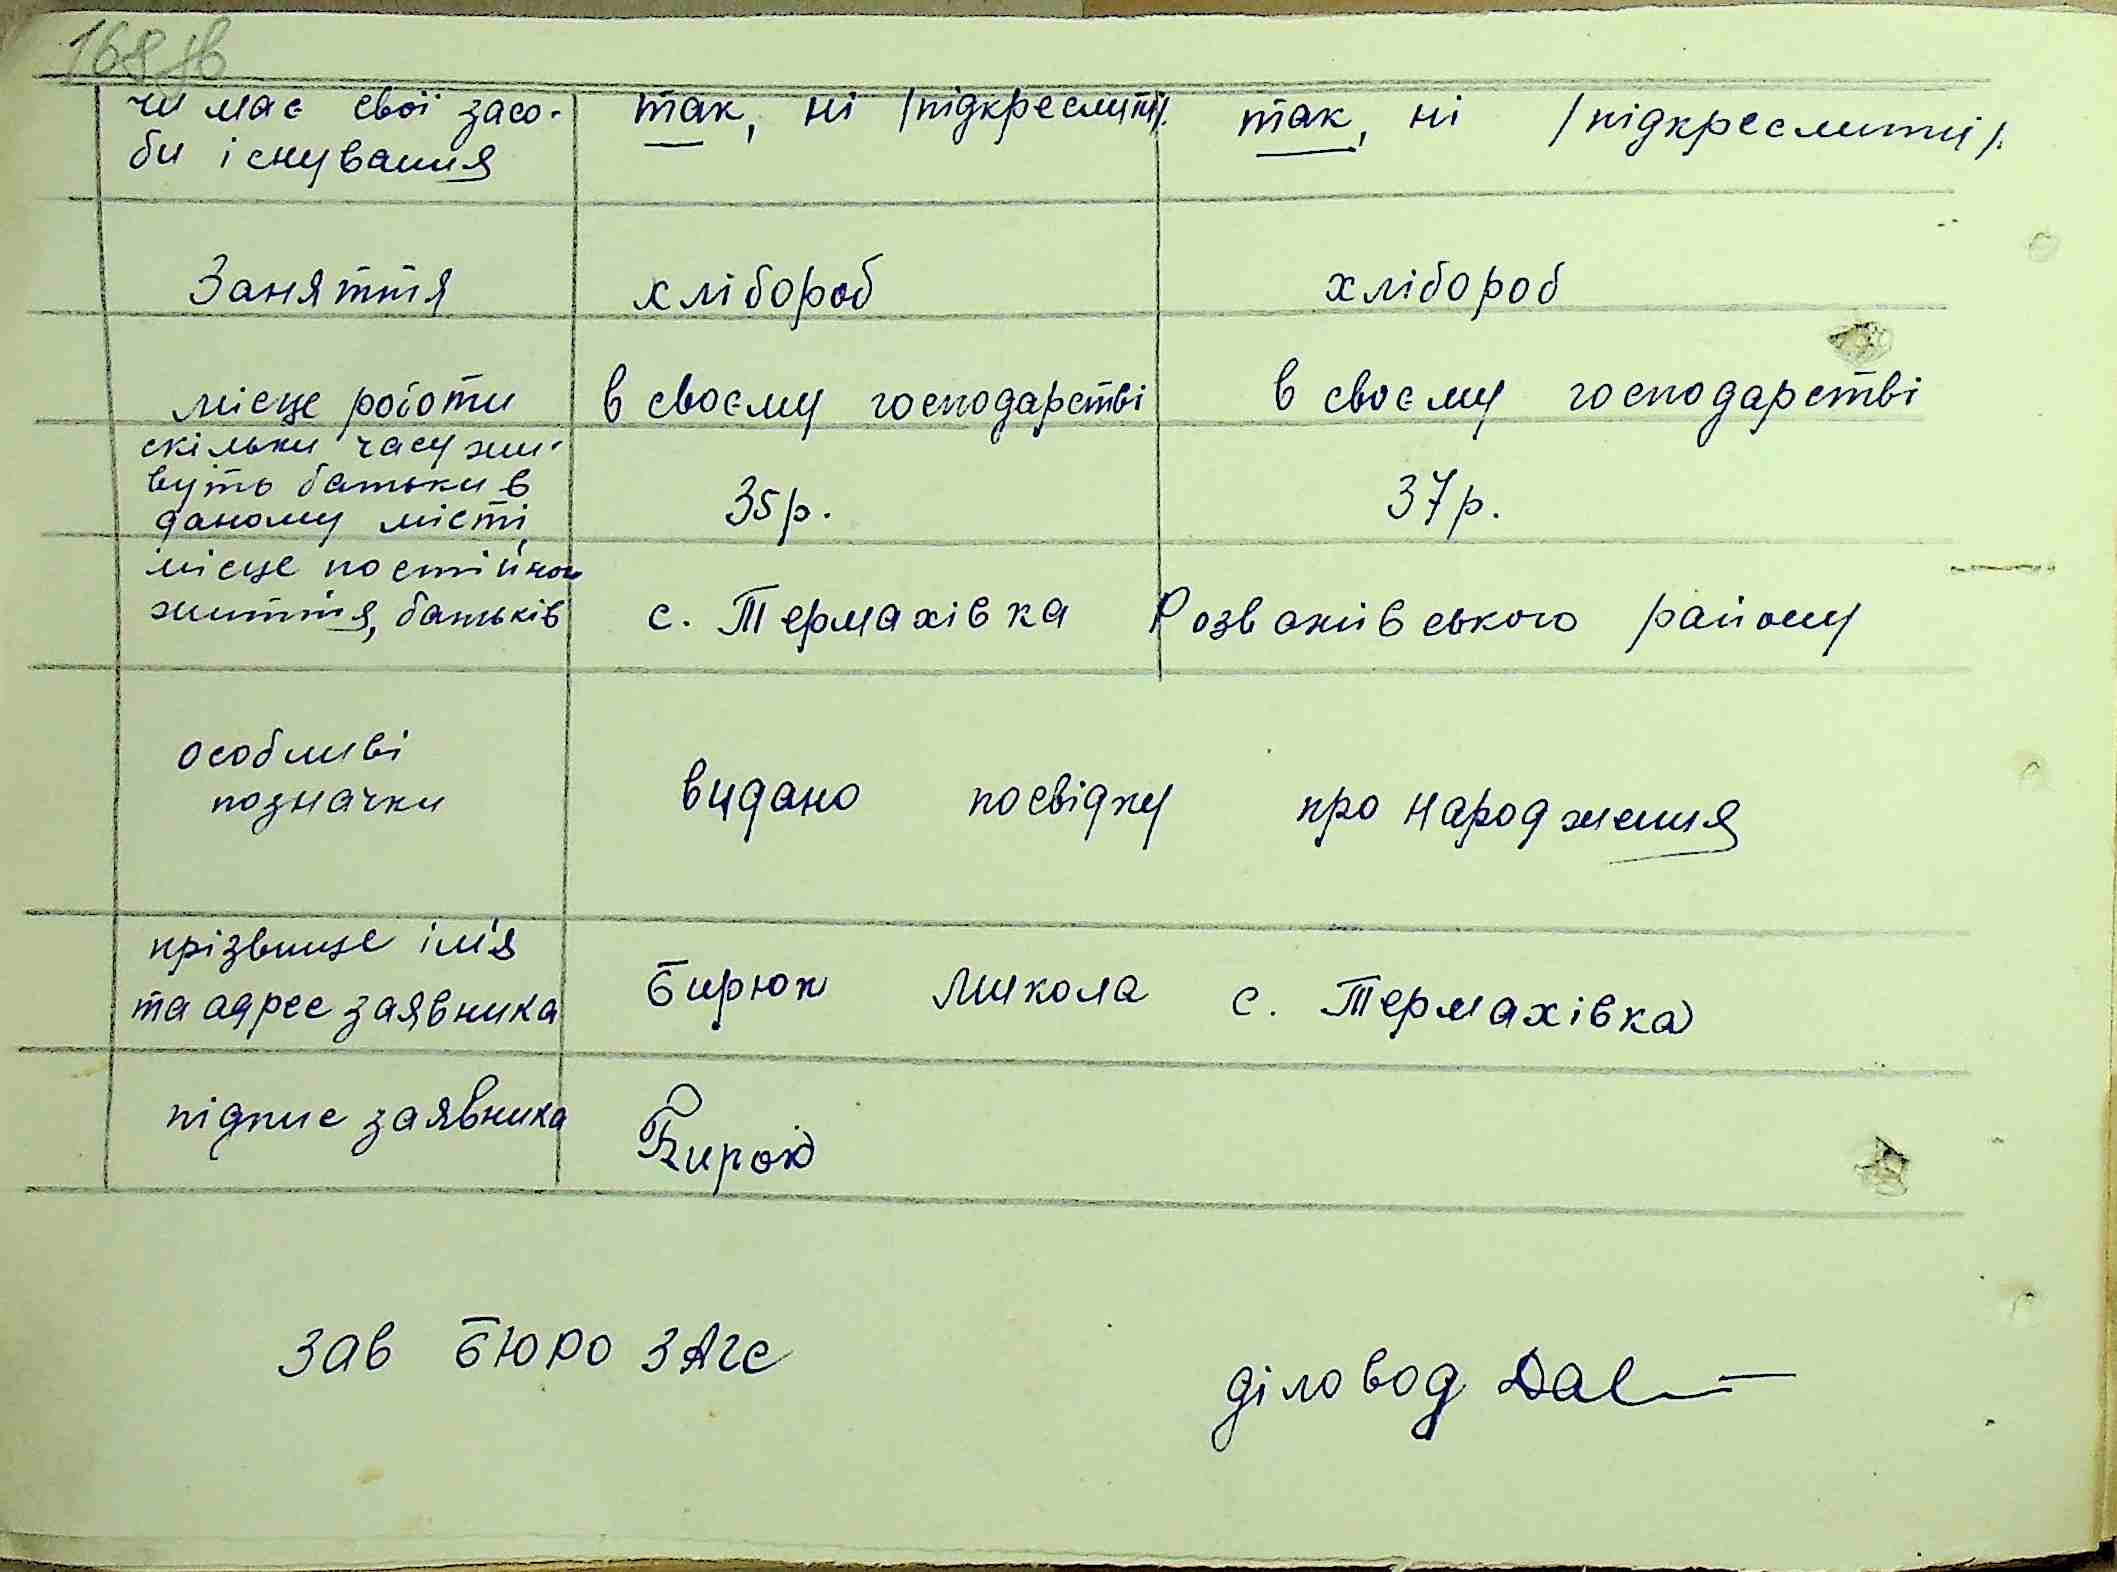 168 зв
чи має свої засо-
би існування
так, ні /підкреслити/.
так, ні /підкреслити/.
Заняття
хлібороб
хлібороб
місце роботи
в своєму господарстві
в своєму господарстві
скільки часу жи-
вуть батьки в
даному місті
35 р.
37 р.
місце постійного
життя, батьків
с. Термахівка Розважівського району
особливі
позначки
видано посвідку про народження
прізвище ім'я
та адрес заявника
Бирюк Микола с. Термахівка
підпис заявника
Бирок
зав БЮРО ЗАГС
діловод